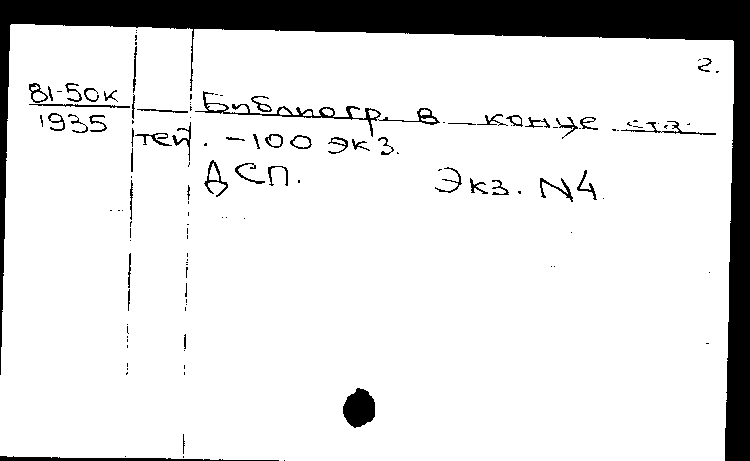 2.
81-50к Библиогр. в конце ста-
1935 тей. - 100 экз.
ДСП. Экз. N4